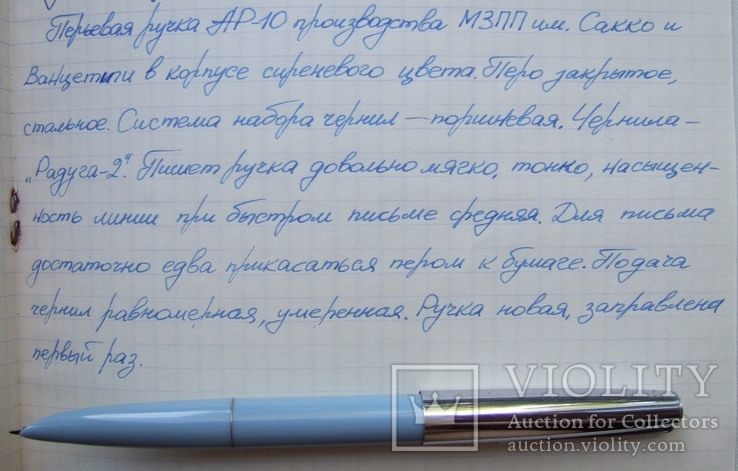 Перьевая ручка АР-10 производства МЗПП им. Сакко и
Ванцетти в корпусе сиреневого цвета. Перо закрытое,
стальное. Система набора чернил — поршневая. Чернила —
„Радуга-2". Пишет ручка довольно мягко, тонко, насыщен-
ность линии при быстром письме средняя. Для письма
достаточно едва прикасаться пером к бумаге. Подача
чернил равномерная, умеренная. Ручка новая, заправлена
первый раз.
VIOLITY
Auction for Collectors
auction.violity.com